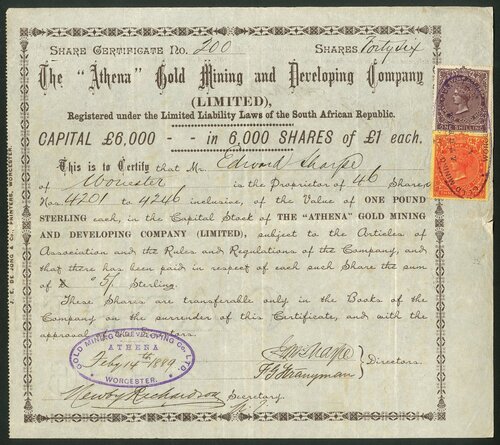 SHARE CERTIFICATE No. 200 SHARES Forty Six
The "Athena" Gold Mining and Developing Company
(LIMITED),
Registered under the Limited Liability Laws of the South African Republic.
CAPITAL £6,000 — in 6,000 SHARES of £1 each.
This is to Certify that Mr. Edward Sharpe
of Worcester is the Proprietor of 46 Shares
Nos 4201 to 4246 inclusive, of the Value of ONE POUND
STERLING each, in the Capital Stock of THE "ATHENA" GOLD MINING
AND DEVELOPING COMPANY (LIMITED), subject to the Articles of
Association and the Rules and Regulations of the Company, and
that there has been paid in respect of each such Share the sum
of £ 5/ Sterling.
These Shares are transferable only in the Books of the
Company on the surrender of this Certificate, and with the
approval of the Directors.
GOLD MINING & DEVELOPING CO. LTD.
ATHENA
Feby 14th 1889
WORCESTER.
Directors.
Newby Richardson Secretary.
ONE SHILLING
PRINTERS, WORCESTER.